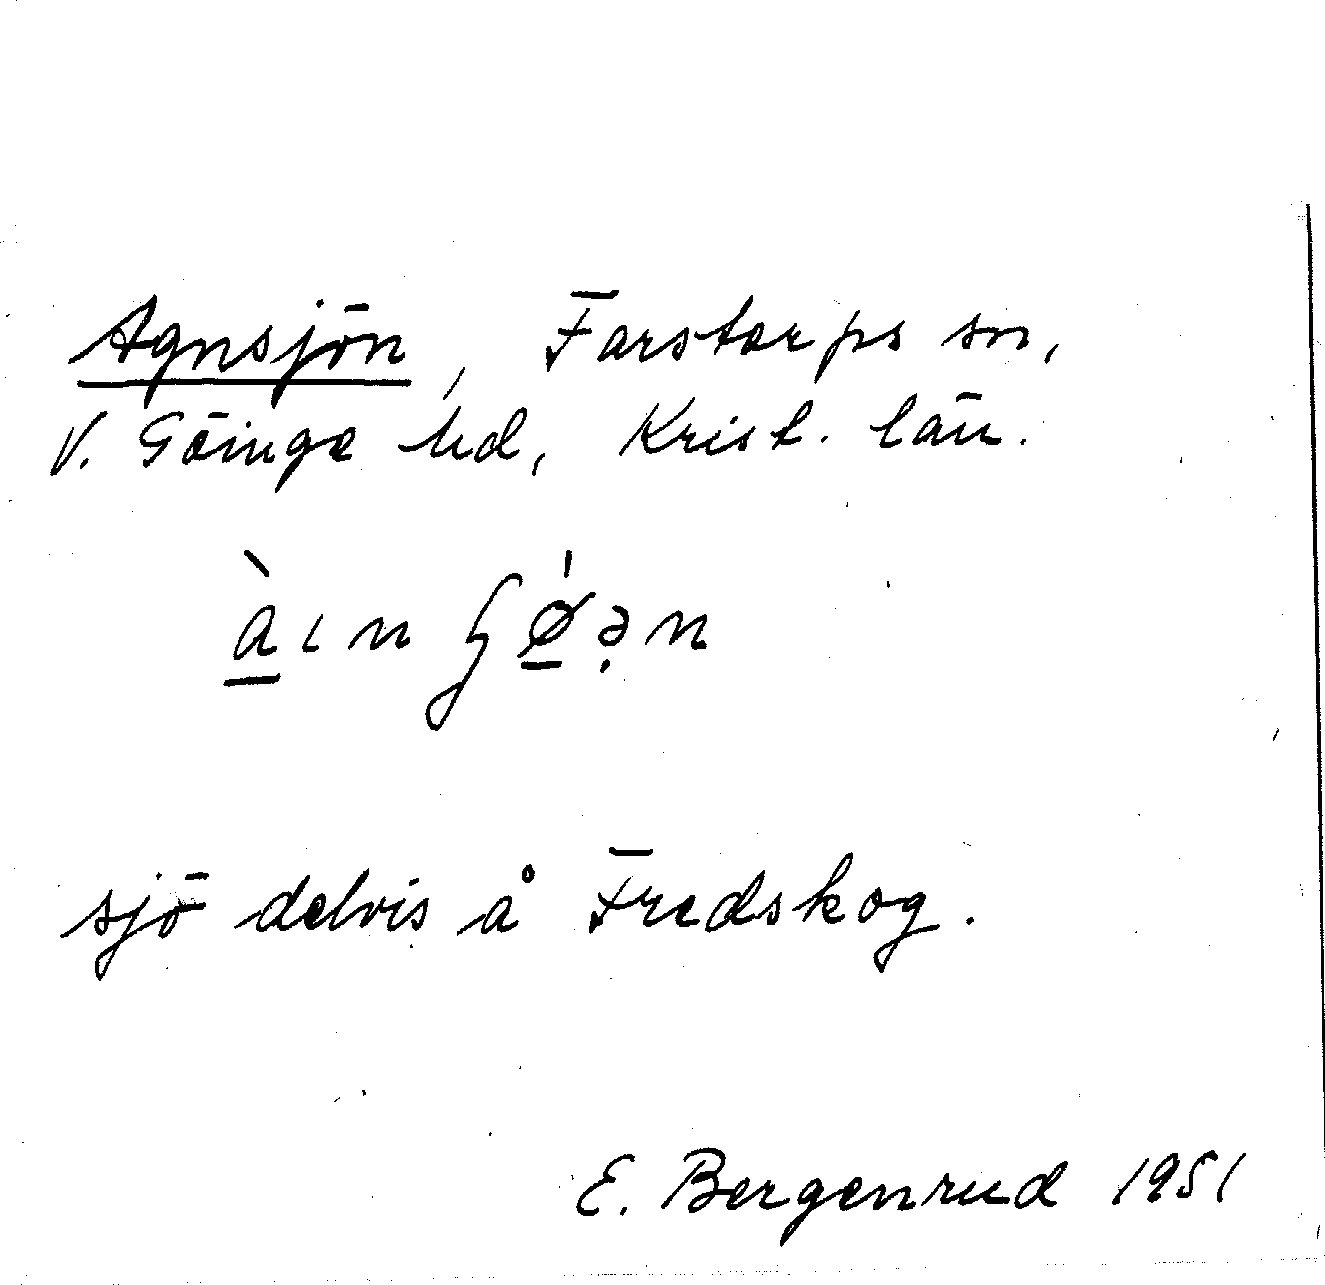 Agnsjön, Farstorps sn,
V. Göinge hd, Krist. län.
sjö delvis å Fredskog.
E. Bergenrud 1951